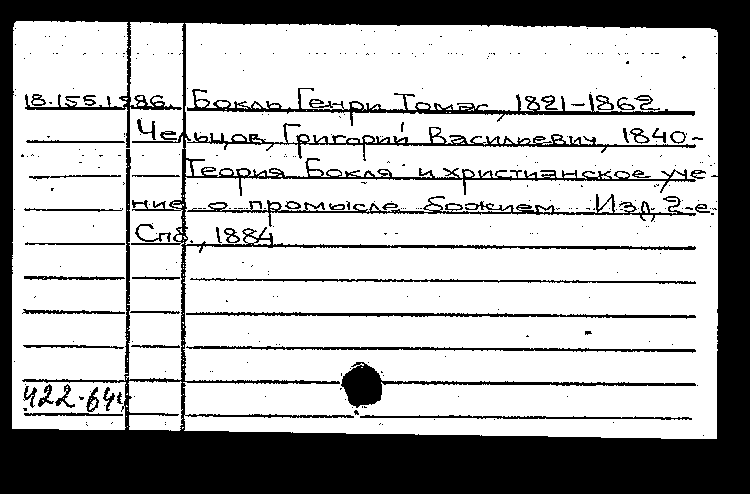 18.155.1.286. Бокль, Генри Томас, 1821-1862.
Чельцов, Григорий Васильевич, 1840-
Теория Бокля и христианское уче-
ние о промысле божием. Изд. 2-е.
Спб., 1884
422-644